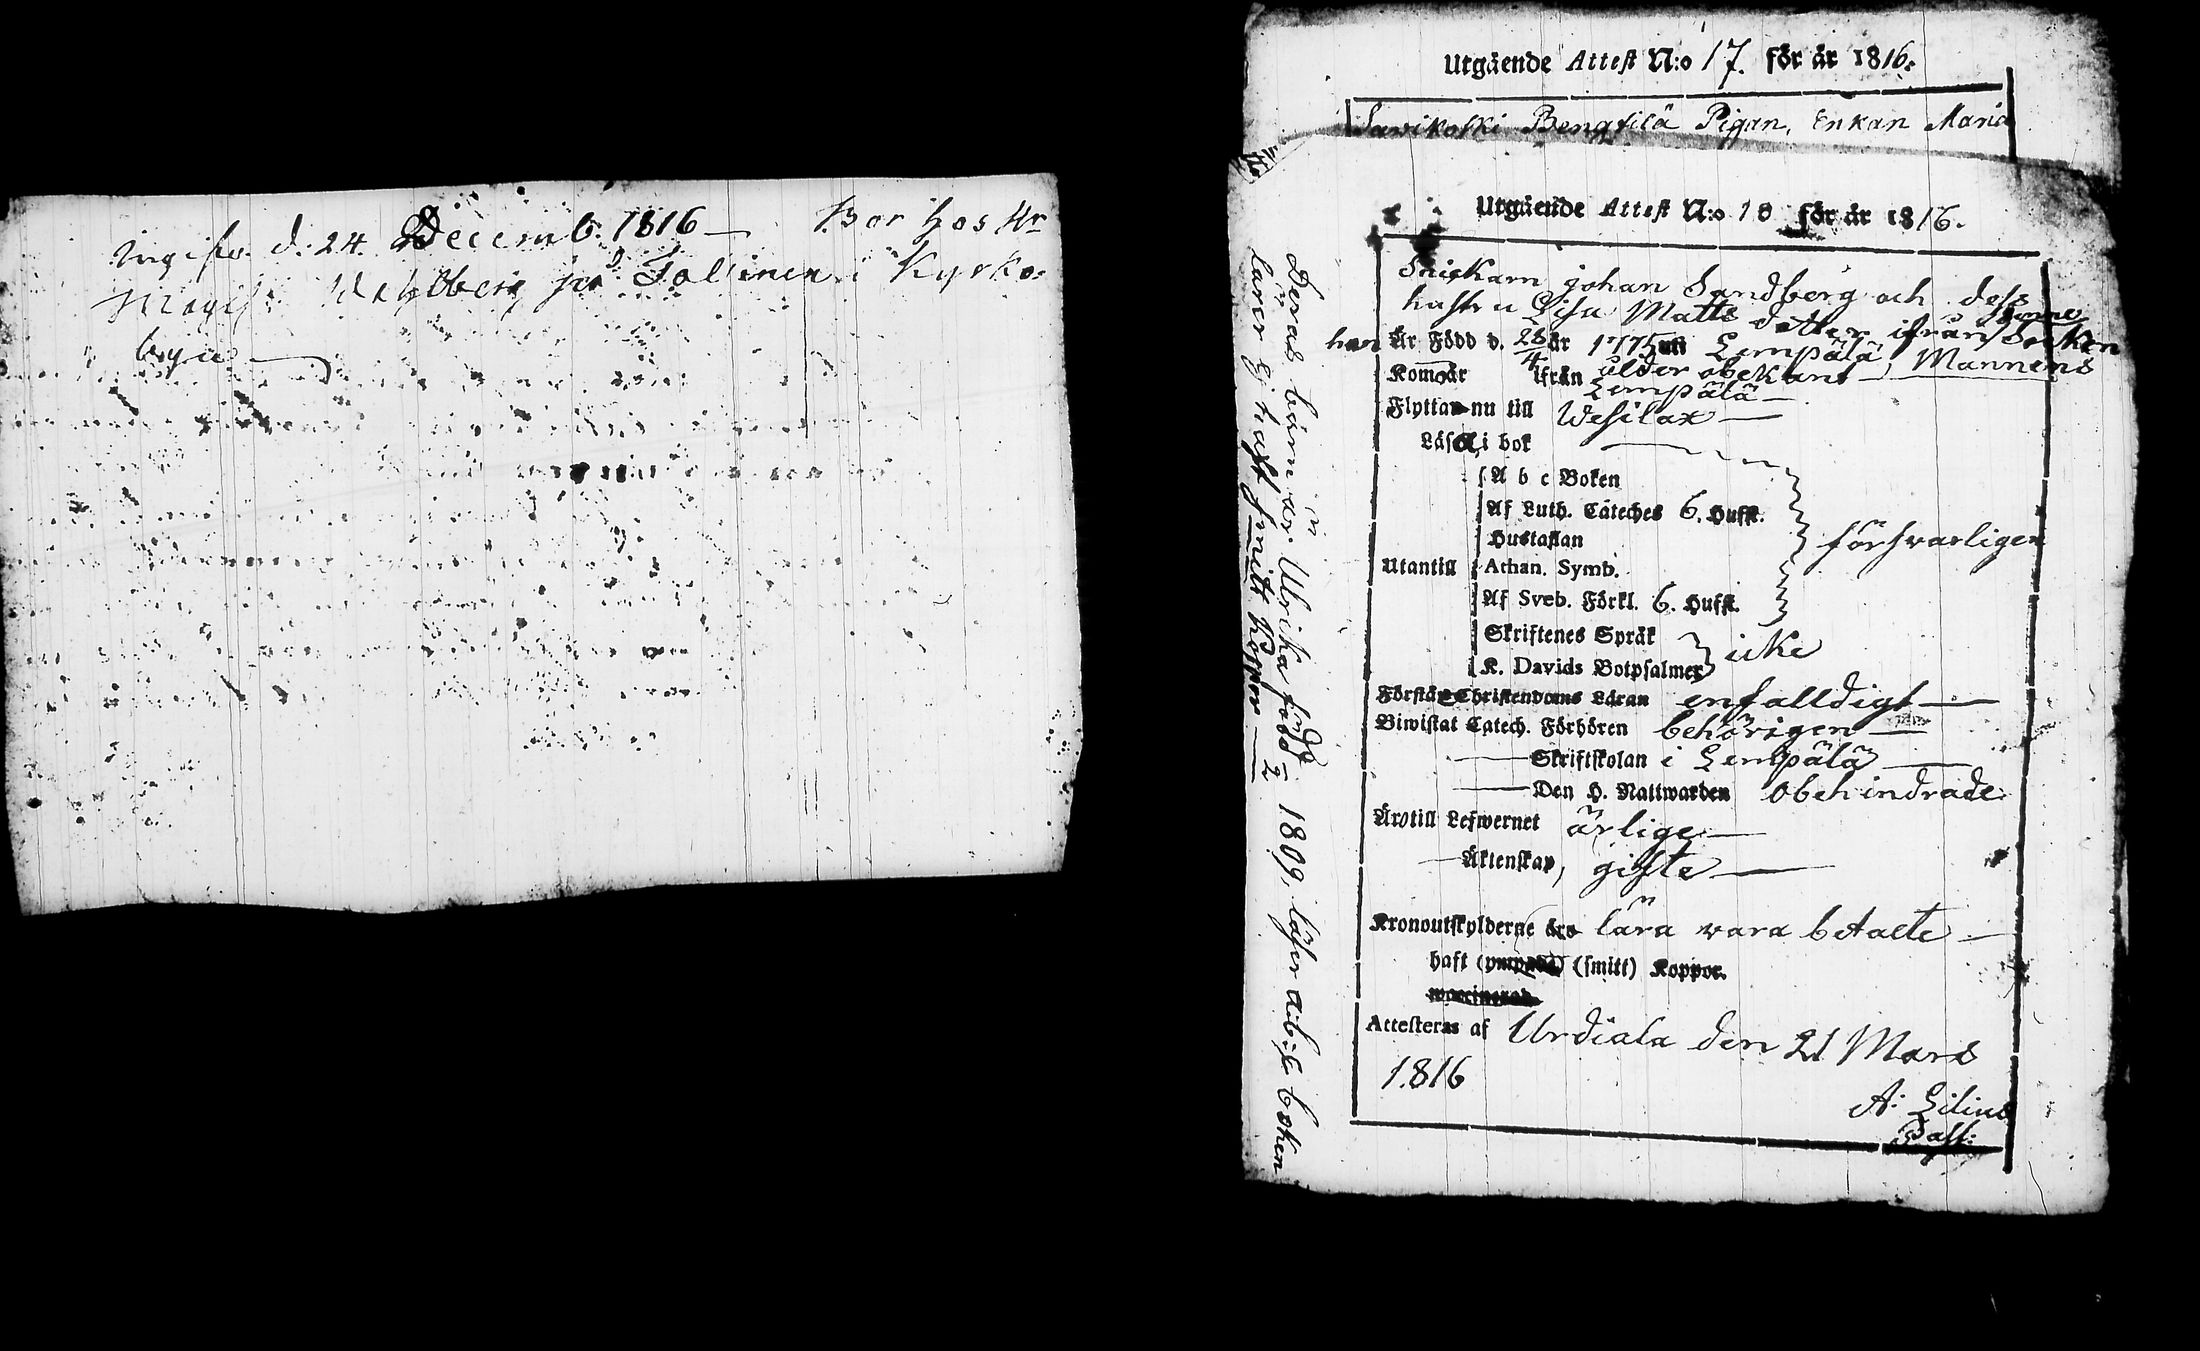 Ingifv. d. 24. Decemb. 1816 — Bor hos Hr
Magist. Wahlberg på Tollinen i Kyrko-
byn —
Utgående Attest N:o 17. för år 1816.
Savikoski Bengtilä Pigan, Enkan Maria
Utgående Attest N:o 18 för år 1816.
Snickarn johan Sandberg och dess
hustru Lisa Matts dotter ifrån denne
Socken
han Är Född d. 28/4 år 1775 uti Lempälä, Mannens
ålder obekant —
Kom år ifrån Lempälä —
Flyttar nu till Wesilax —
Läsa i bok
A b c Boken
Af Luth. Cateches 6. Hufst.
Hustaflan
försvarligen
Utantill Athan. Symb.
Af Sveb. Förkl. 6. Hufst.
Skriftenes Språk
icke
K. Davids Botpsalmer
Förstå Christendoms Läran enfalldigt —
Biwistat Catech. Förhören behörigen —
— Skriftskolan i Lempälä —
— Den H. Nattwarden obehindrade
Äro till Lefwernet ärlige —
— Äktenskap, gifte —
Kronoutskylderne äro lära vara betalte —
haft (smitt) Koppor.
Attesteras af Urdiala den 21 Mars
1816
A: Lilius
Past:
Deras barn är Ulrika född 2 1809, läser abc boken
lärer ej haft smitt koppor —